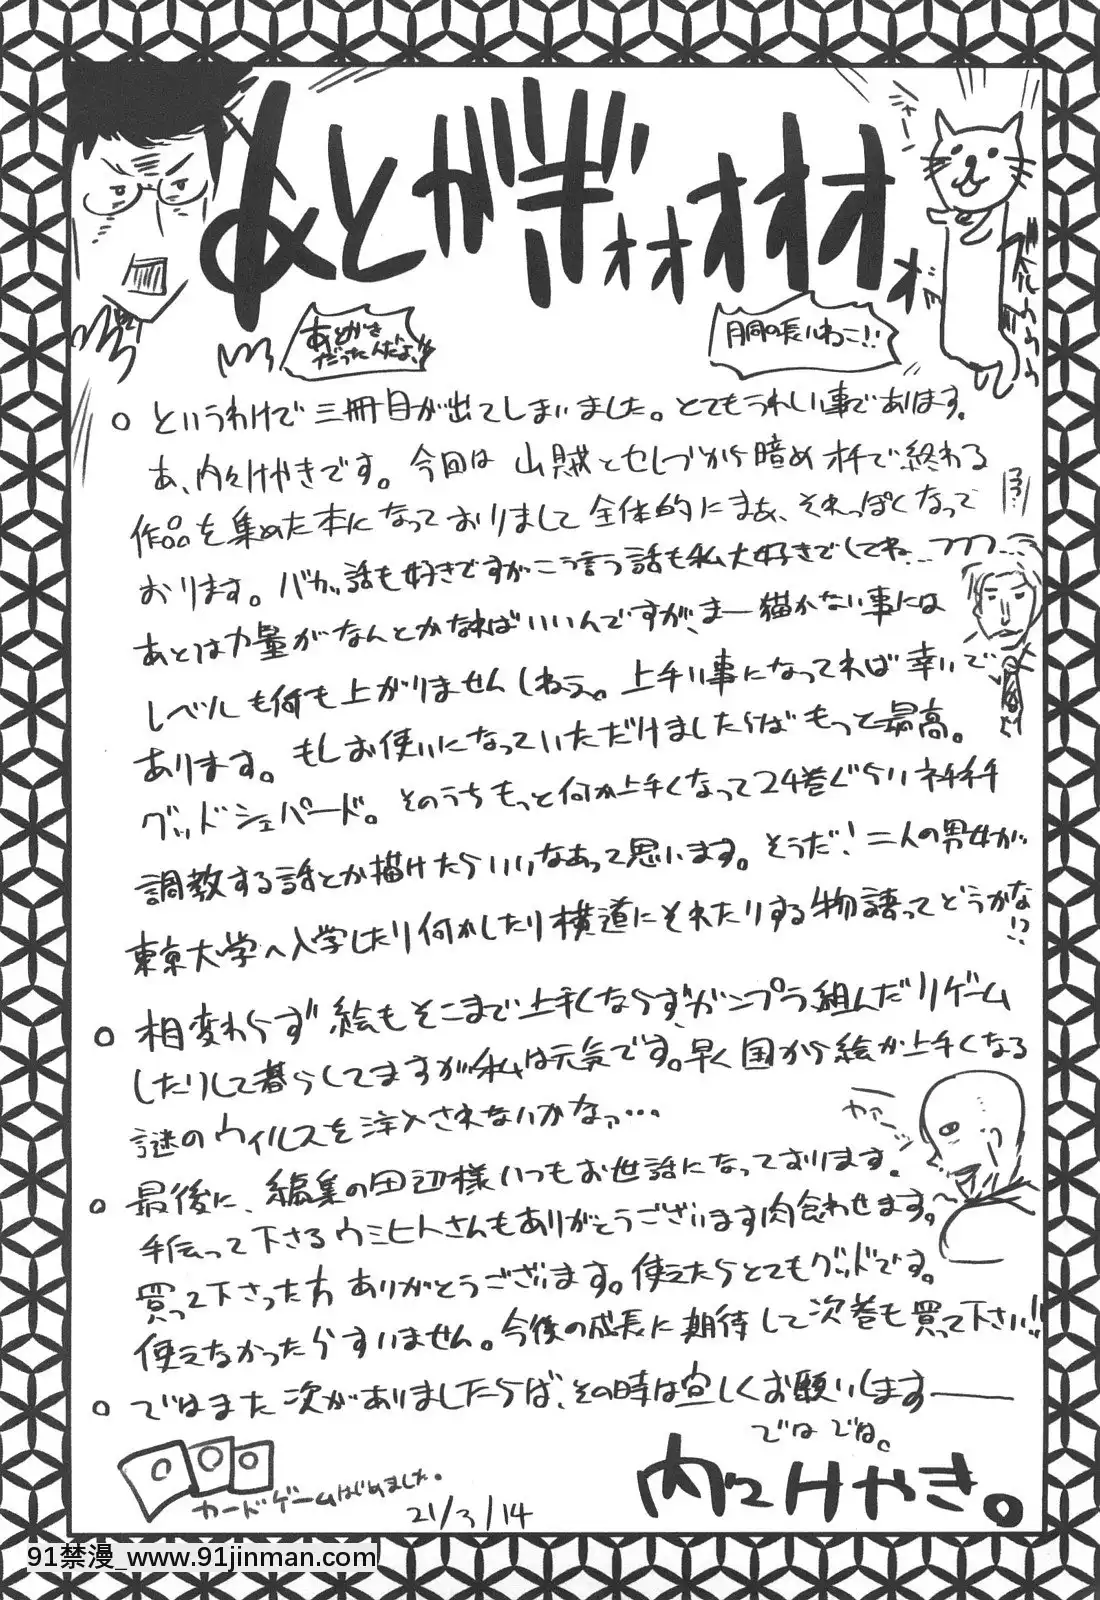 あとがぎォオオオオオ
オー
あとがき
だったんだよ!!
胴の長いねこ!!
○ というわけで三冊目が出てしまいました。とてもうれしい事であります。
あ、内々けやきです。今回は 山賊とセレブから暗めオチで終わる
作品を集めた本になっておりまして全体的にまぁ、それっぽくなって
おります。バカな話も好きですがこう言う話も私大好きでしてね…フフフ…
あとは力量がなんとかなればいいんですが、まー描かない事には
レベルも何も上がりませんしねぇ。上手い事になってれば幸いで
あります。もしお使いになっていただけましたらばもっと最高。
グッドシェパード。そのうちもっと何か上手くなって24巻ぐらいネチネチ
調教する話とか描けたらいいなあって思います。そうだ!二人の男女が
東京大学へ入学したり何かしたり横道にそれたりする物語ってどうかな!?
○ 相変わらず絵もそこまで上手くならず、ガンプラ組んだりゲーム
したりして暮らしてますが私は元気です。早く国から絵が上手くなる
謎のウィルスを注入されないかなっ…
○ 最後に、編集の田辺様いつもお世話になっております。
手伝って下さるウミヒトさんもありがとうございます肉食わせます。
買って下さった方ありがとうございます。使えたらとてもグッドです。
使えなかったらすいません。今後の成長に期待して次巻も買って下さい!!
○ ではまた次がありましたらば、その時は宜しくお願いします――
ではでは。
カードゲームはじめました。
21/3/14
内々けやき。
91禁漫_www.91jinman.com